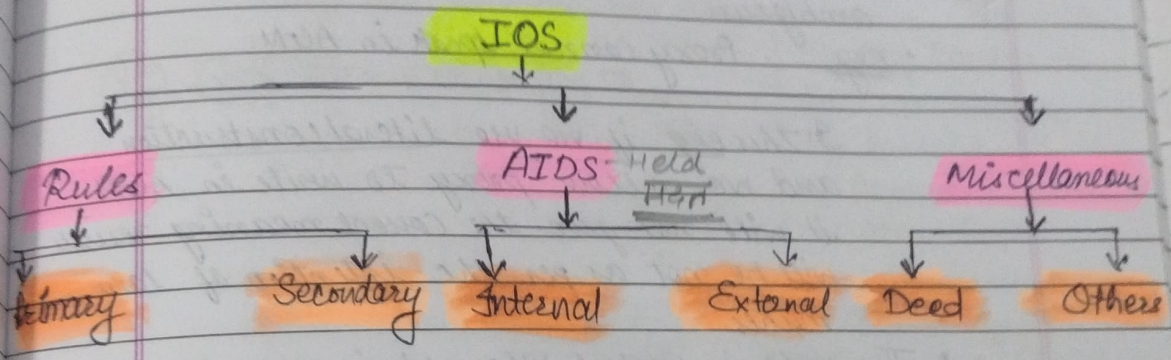 IOS
Rules AIDS - Held Miscellaneous
Primary Secondary Internal External Deed Others